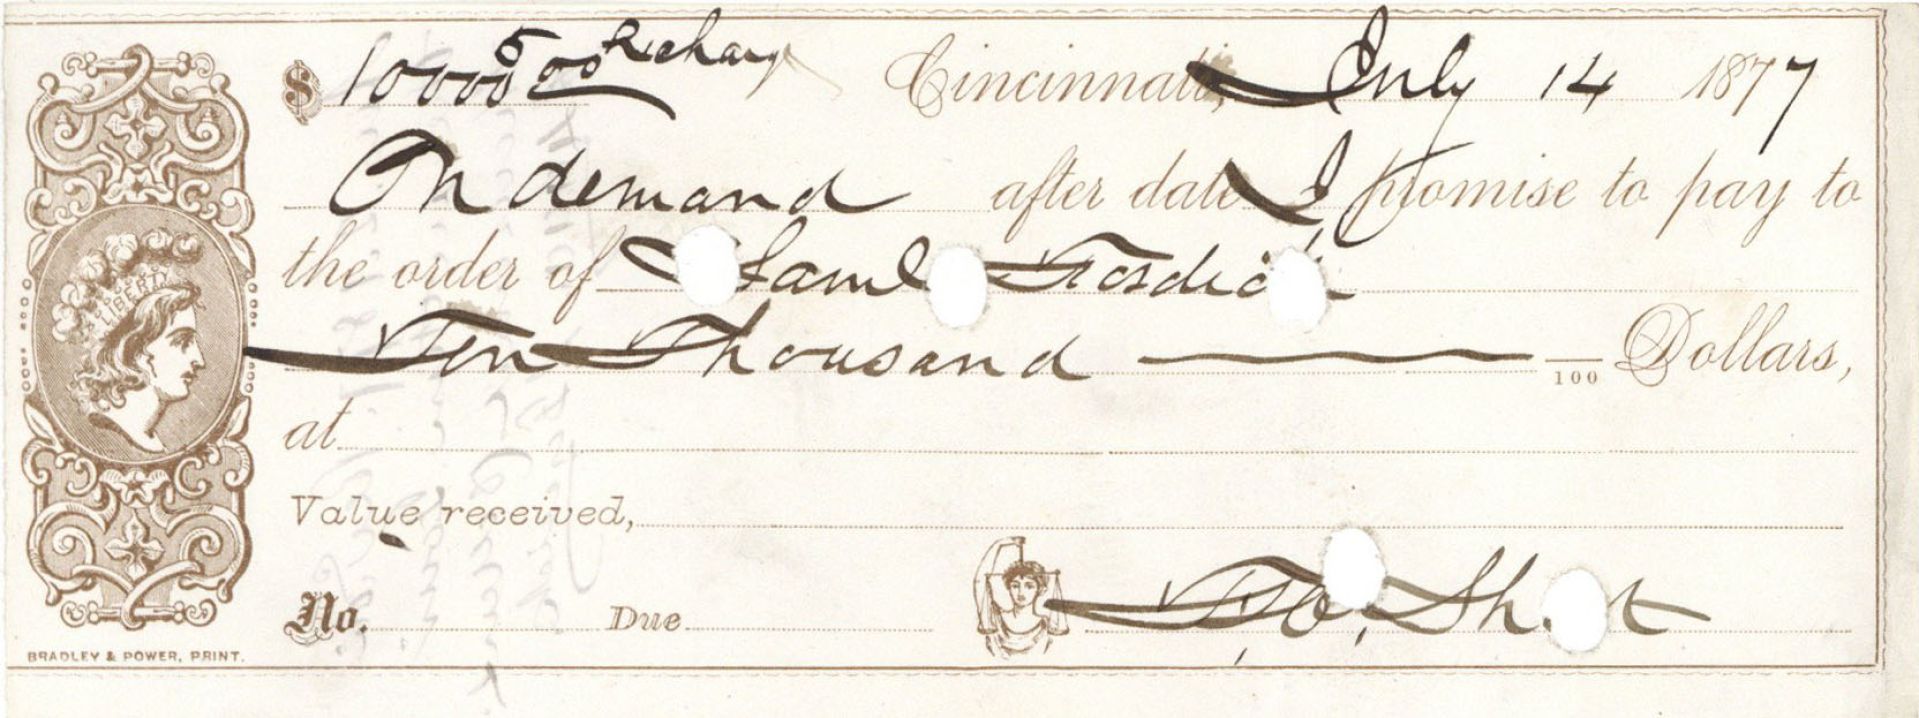 $ 10000 5/00 Exchang Cincinnati, July 14 1877
On demand after date I promise to pay to
the order of Saml Fosdick
Ten Thousand /100 Dollars,
at
Value received,
No. Due
LIBERTY
BRADLEY & POWER, PRINT.